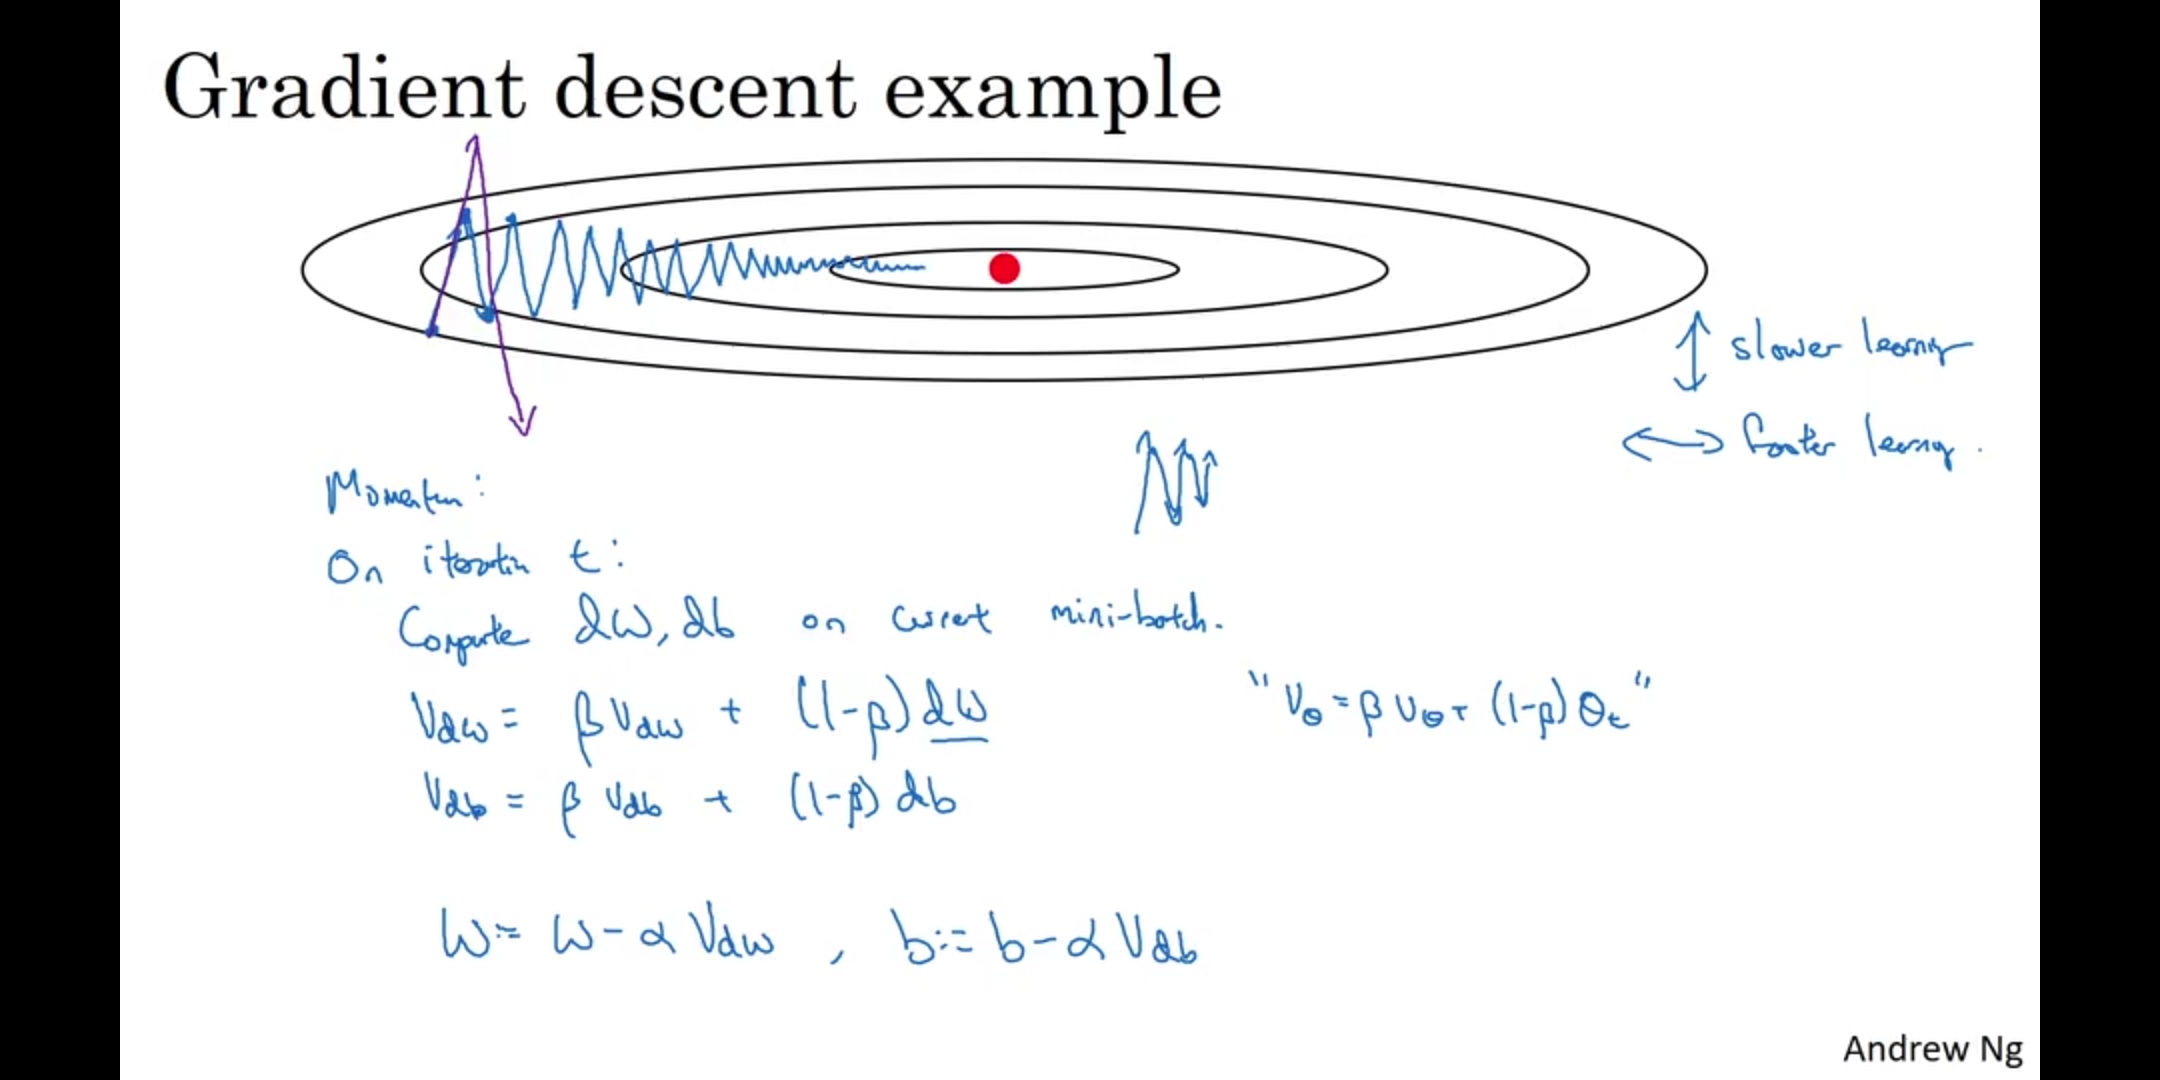 Gradient descent example
↕ slower learning
↔ faster learning.
Momentum:
On iteration t:
Compute dW, db on current mini-batch.
Vdw = βVdw + (1-β)dW "Vθ = βVθ + (1-β)θt"
Vdb = βVdb + (1-β)db
W:= W-αVdw , b:= b-αVdb
Andrew Ng